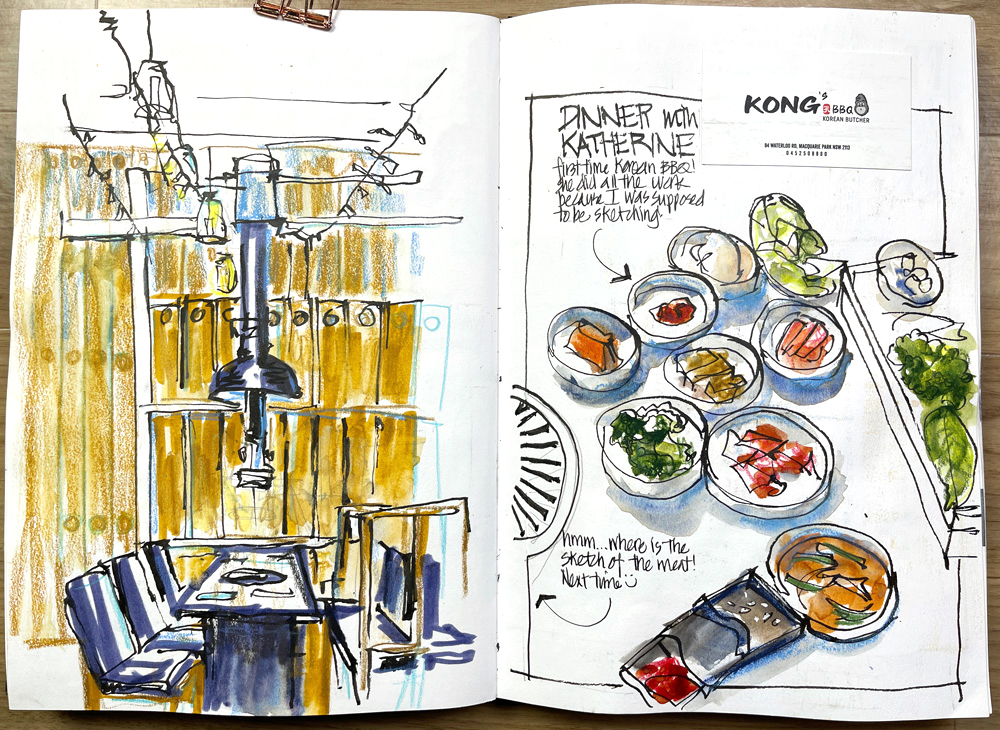 DINNER with
KATHERINE
first time Korean BBQ!
she did all the work
because I was supposed
to be sketching.
KONG's BBQ
KOREAN BUTCHER
84 WATERLOO RD, MACQUARIE PARK NSW 2113
0452508880
hmm...where is the
sketch of the meat!
Next time